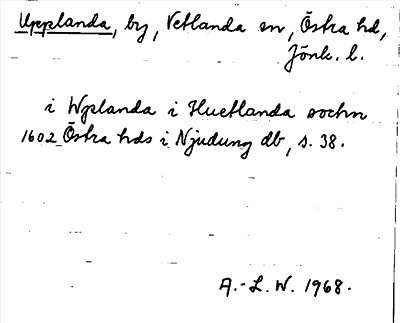 Upplanda, by, Vetlanda sn, Östra hd,
Jönk. l.
i Wplanda i Huetlanda sochn
1602 Östra hds i Njudung db, s. 38.
A.-L. W. 1968.